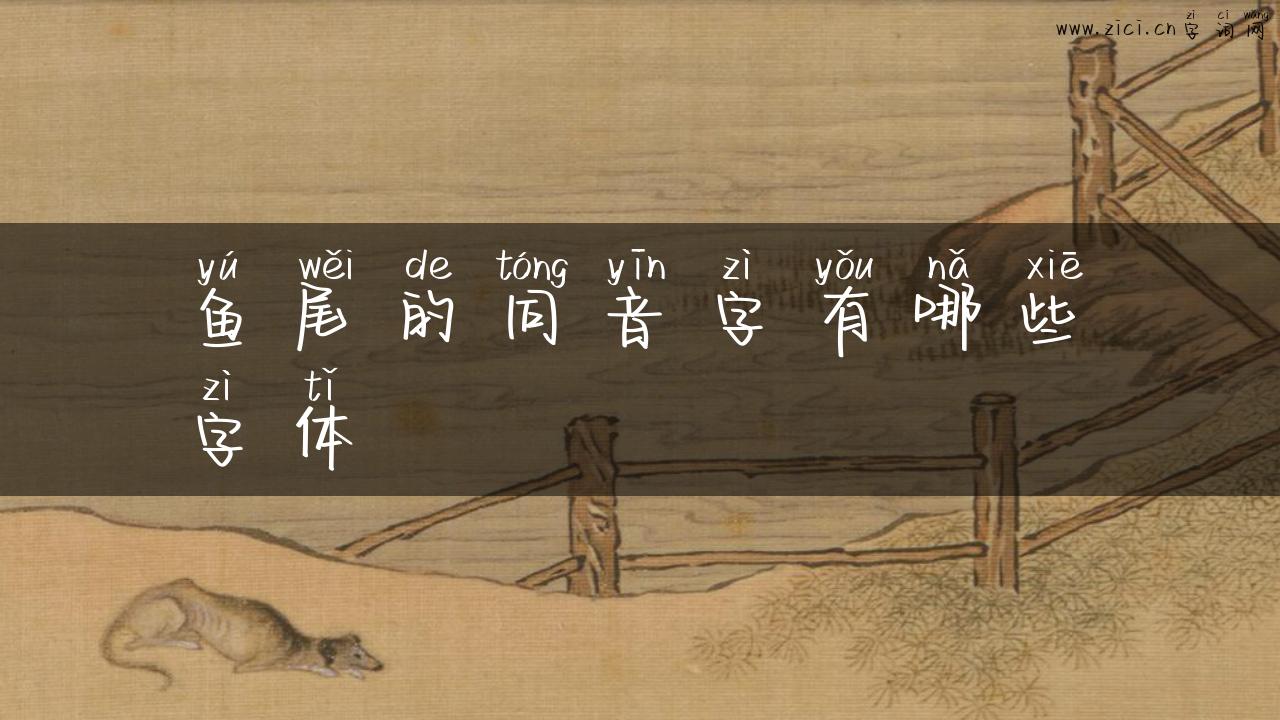 zì cí wǎng
www.zici.cn 字词网
yú wěi de tóng yīn zì yǒu nǎ xiē
鱼尾的同音字有哪些
zì tǐ
字体